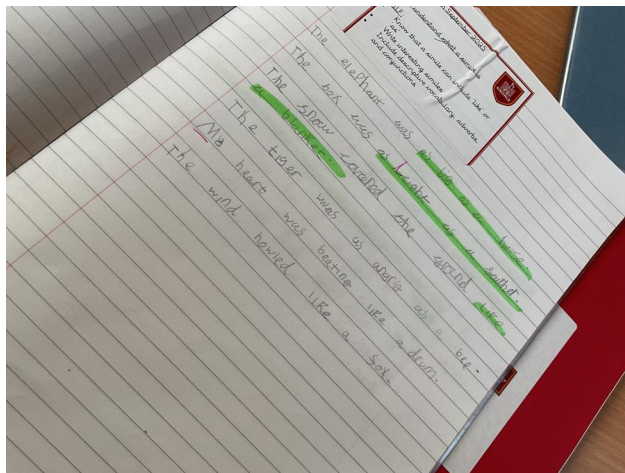 September 2025
understand what a simile is
Know that a simile can include 'like' or
as
Write interesting similes
Include descriptive vocabulary, adverbs
and conjunctions
The elephant was as big as a
The box was as light as a
The snow covered the like
a blanket.
The tiger was as as a
My heart was beating like a drum.
The wind howled like a